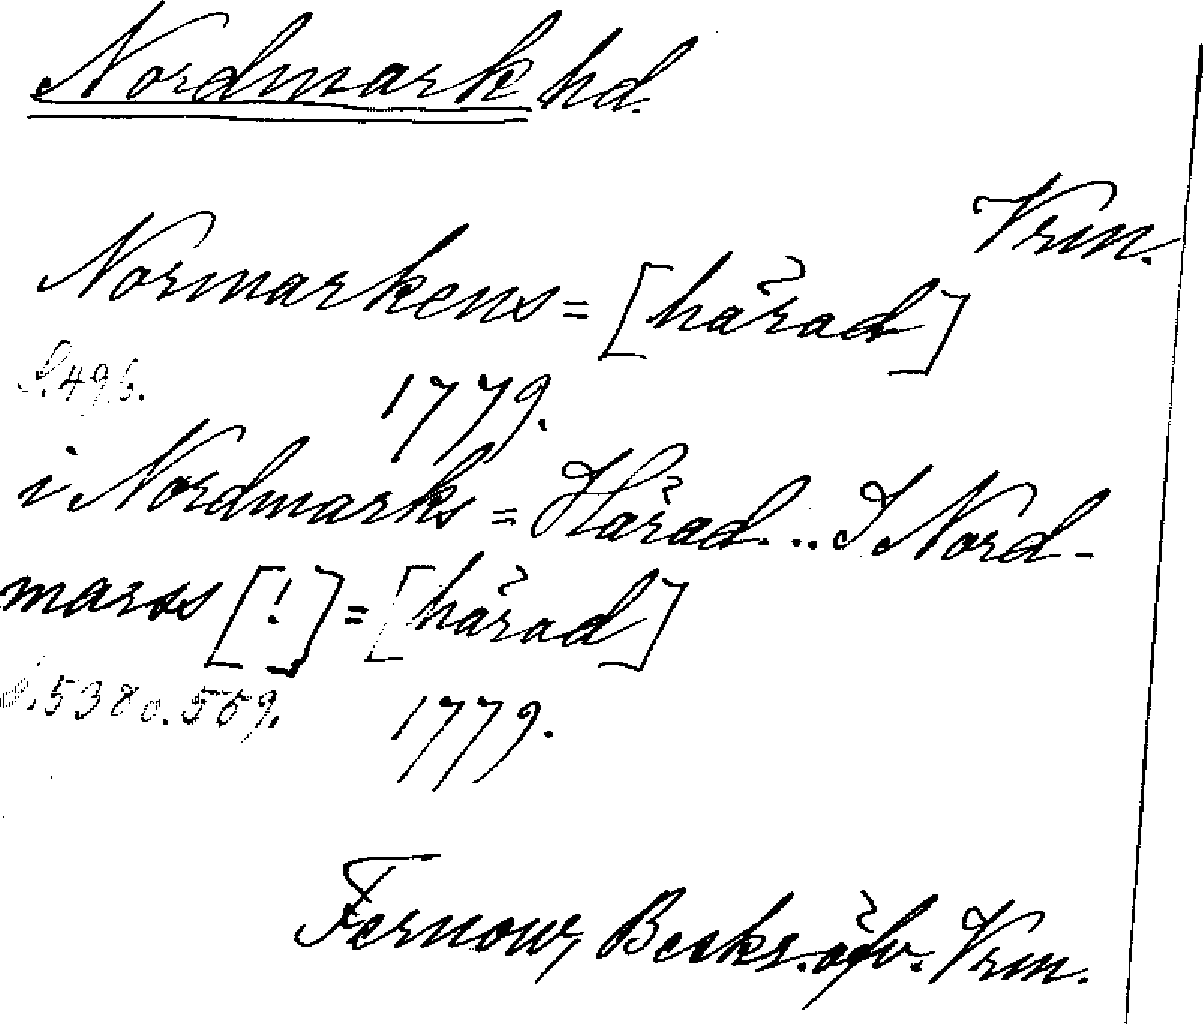 Nordmark hd.
Vrm.
Normarkens=[härad]
S. 496.
1779.
i Nordmarks=Härad... I Nord-
marss [!]=[härad]
S. 538 o. 559.
1779.
Fernow, Beskr. öfv. Vrm.